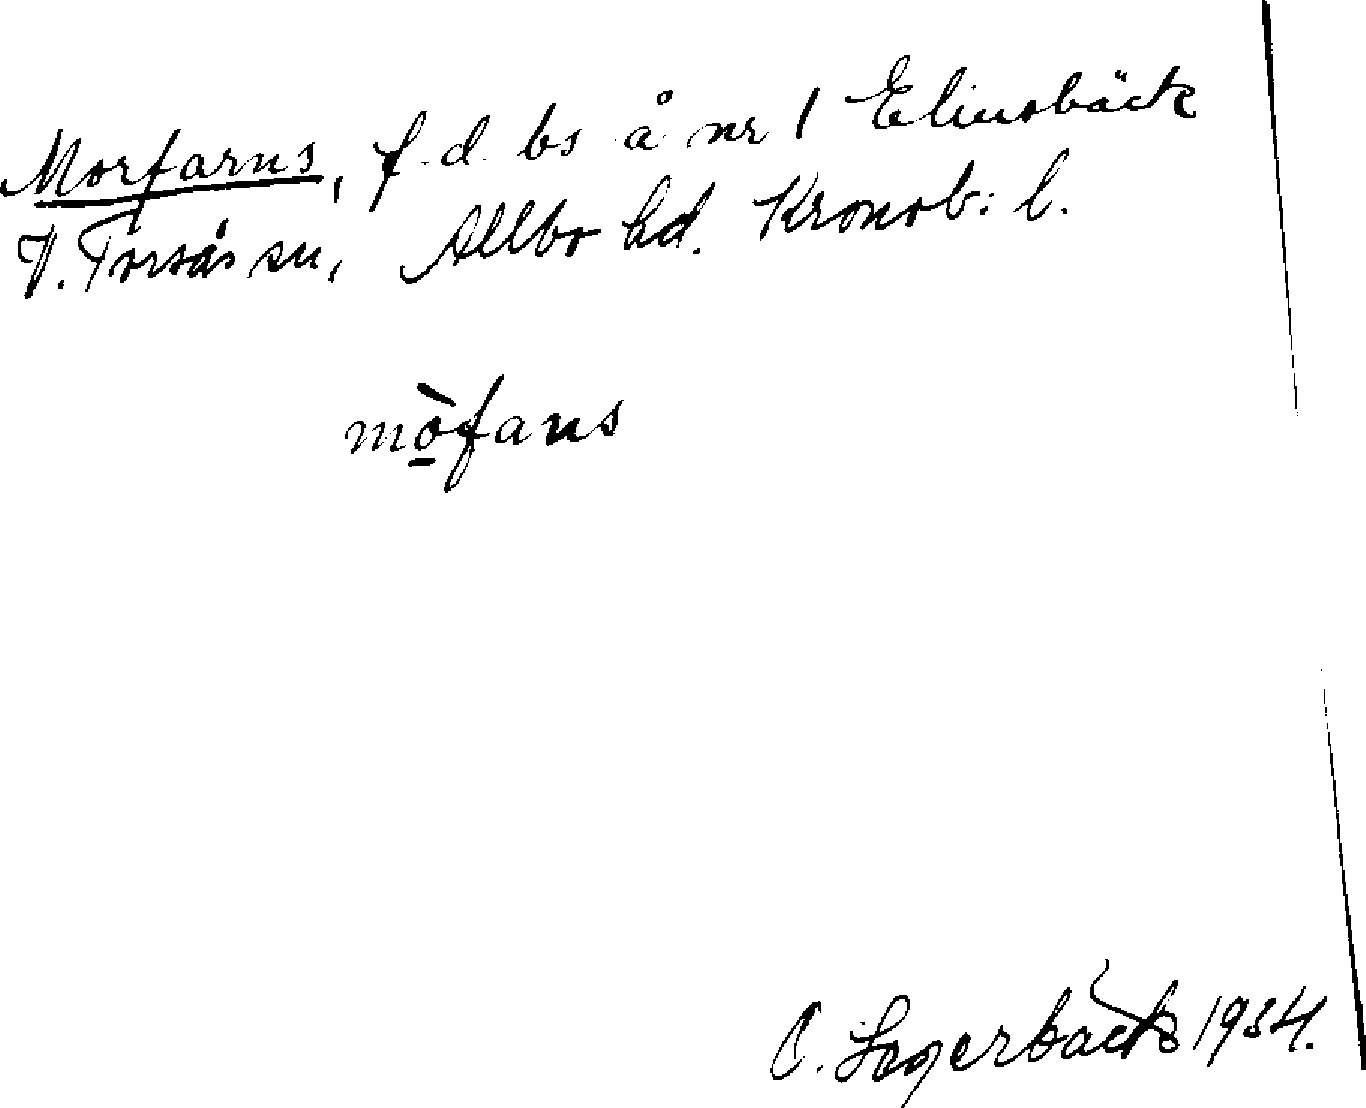 Morfarns, f.d. bs å nr 1 Elinsbäck
V. Torsås sn, Allbo hd. Kronob. l.
mò̲fans
O. Lagerbäck 1934.